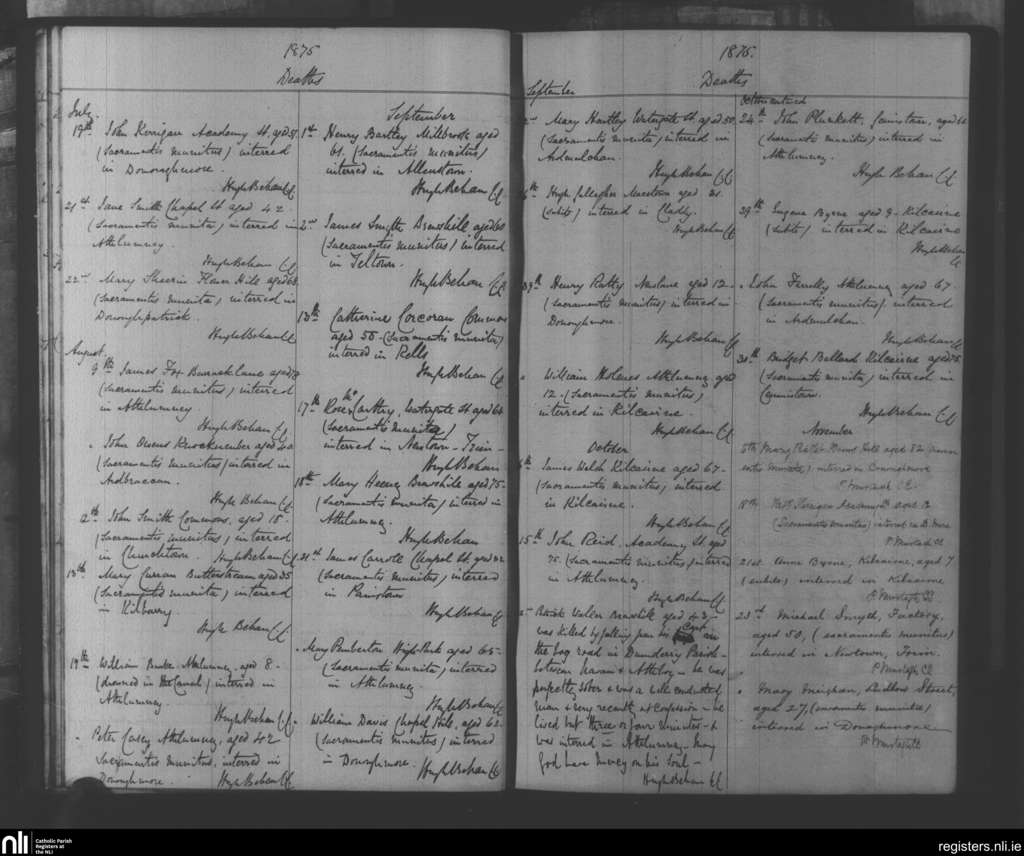 1875
Deaths
July
19th John Kerrigan Academy St. aged
(Sacramentis munitus) interred
in Donoughmore.
Hugh Behan CC
21st Jane Smith Chapel St aged 42.
(Sacramentis munita) interred in
Athlumney.
Hugh Behan CC
22nd Mary Sheerin Flower Hill aged 68
(Sacramentis munita) interred in
Donoughpatrick.
Hugh Behan CC
August
9th James Fox Barrack Lane aged
(Sacramentis munitus) interred
in Athlumney
Hugh Behan CC
" John Owens Knockumber aged
(Sacramentis munitus) interred in
Ardbraccan.
Hugh Behan CC
12th John Smith Commons, aged 18.
(Sacramentis munitus) interred
in Churchtown. Hugh Behan CC
13th Mary Curran Butterstream aged 35
(Sacramentis munita) interred
in Kilberry.
Hugh Behan CC
19th William Burke Athlumney, aged 8.
(drowned in the Canal) interred in
Athlumney.
Hugh Behan CC
" Peter Casey Athlumney, aged 42
Sacramentis munitus, interred in
Donoughmore. Hugh Behan CC
September
1st Henry Bartley Millbrook aged
61. (Sacramentis munitus)
interred in Allenstown.
Hugh Behan CC
2nd James Smyth Brewshill aged 60
(Sacramentis munitus) interred
in Teltown.
Hugh Behan CC
13th Catherine Corcoran Commons
aged 50. (Sacramentis munita)
interred in Kells
Hugh Behan CC
17th Rose McCarthy, Watergate St aged
(Sacramentis munita)
interred in Newtown - Trim -
Hugh Behan
18th Mary Heeney Brewshill aged 75.
(Sacramentis munita) interred in
Athlumney.
Hugh Behan
21st James Carroll Chapel St aged
(Sacramentis munitus) interred
in Painstown
Hugh Behan CC
" Mary Pemberton High Park aged 65.
(Sacramentis munita) interred
in Athlumney
Hugh Behan CC
" William Davis Chapel Hill, aged 62.
(Sacramentis munitus) interred
in Donoughmore. Hugh Behan CC
1875.
Deaths
September
Mary Hantley Watergate St. aged 50.
(Sacramentis munita) interred in
Ardmulchan.
Hugh Behan CC
Hugh Gallagher aged 21.
(subito) interred in
Hugh Behan CC
29th Henry Ratty Navan aged 12.
(Sacramentis munitus) interred in
Donoughmore.
Hugh Behan CC
" William Holmes Athlumney aged
12. (Sacramentis munitus)
interred in Kilcairne.
Hugh Behan CC
October
James Welsh Kilcairne aged 67.
(Sacramentis munitus) interred
in Kilcairne.
Hugh Behan CC
15th John Reid. Academy St. aged
75. (Sacramentis munitus) interred
in Athlumney.
Hugh Behan CC
Patrick Brewshill aged 43,
was killed by falling from his Cart on
the bog road in Dunderry Parish -
between Navan & Athboy - he was
perfectly sober & was a well conducted
man & very recently at confession - he
lived but three or four minutes - &
was interred in Athlumney. May
God have mercy on his Soul -
Hugh Behan CC
October continued
24th John Plunkett, aged
(Sacramentis munitus) interred in
Athlumney.
Hugh Behan CC
29th Eugene Byrne aged 9. Kilcairne
(subito) interred in Kilcairne
Hugh Behan
CC
" John Farrelly Athlumney aged 67.
(Sacramentis munitus) interred
in Ardmulchan.
Hugh Behan CC
30th Bridget Kilcairne aged 75
(Sacramentis munita) interred in
Hugh Behan CC
November
6th Mary aged 32
munita) interred in Donoughmore
P
18th
(Sacramentis munitus) interred in
P
21st Anne Byrne, Kilcairne, aged 7
(subito) interred in Kilcairne
P
23rd Michael Smyth, Factory,
aged 50, (sacramentis munitus)
interred in Newtown, Trim.
P
" Mary Ludlow Street,
aged 27, (sacramentis munita)
interred in Donaghmore
P
nli
Catholic Parish
Registers at
the NLI
registers.nli.ie